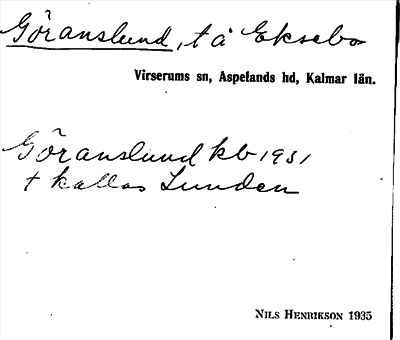 Göranslund, t å Eksebo
Virserums sn, Aspelands hd, Kalmar län.
Göranslund kb 1931
+ kallas Lunden
NILS HENRIKSON 1935